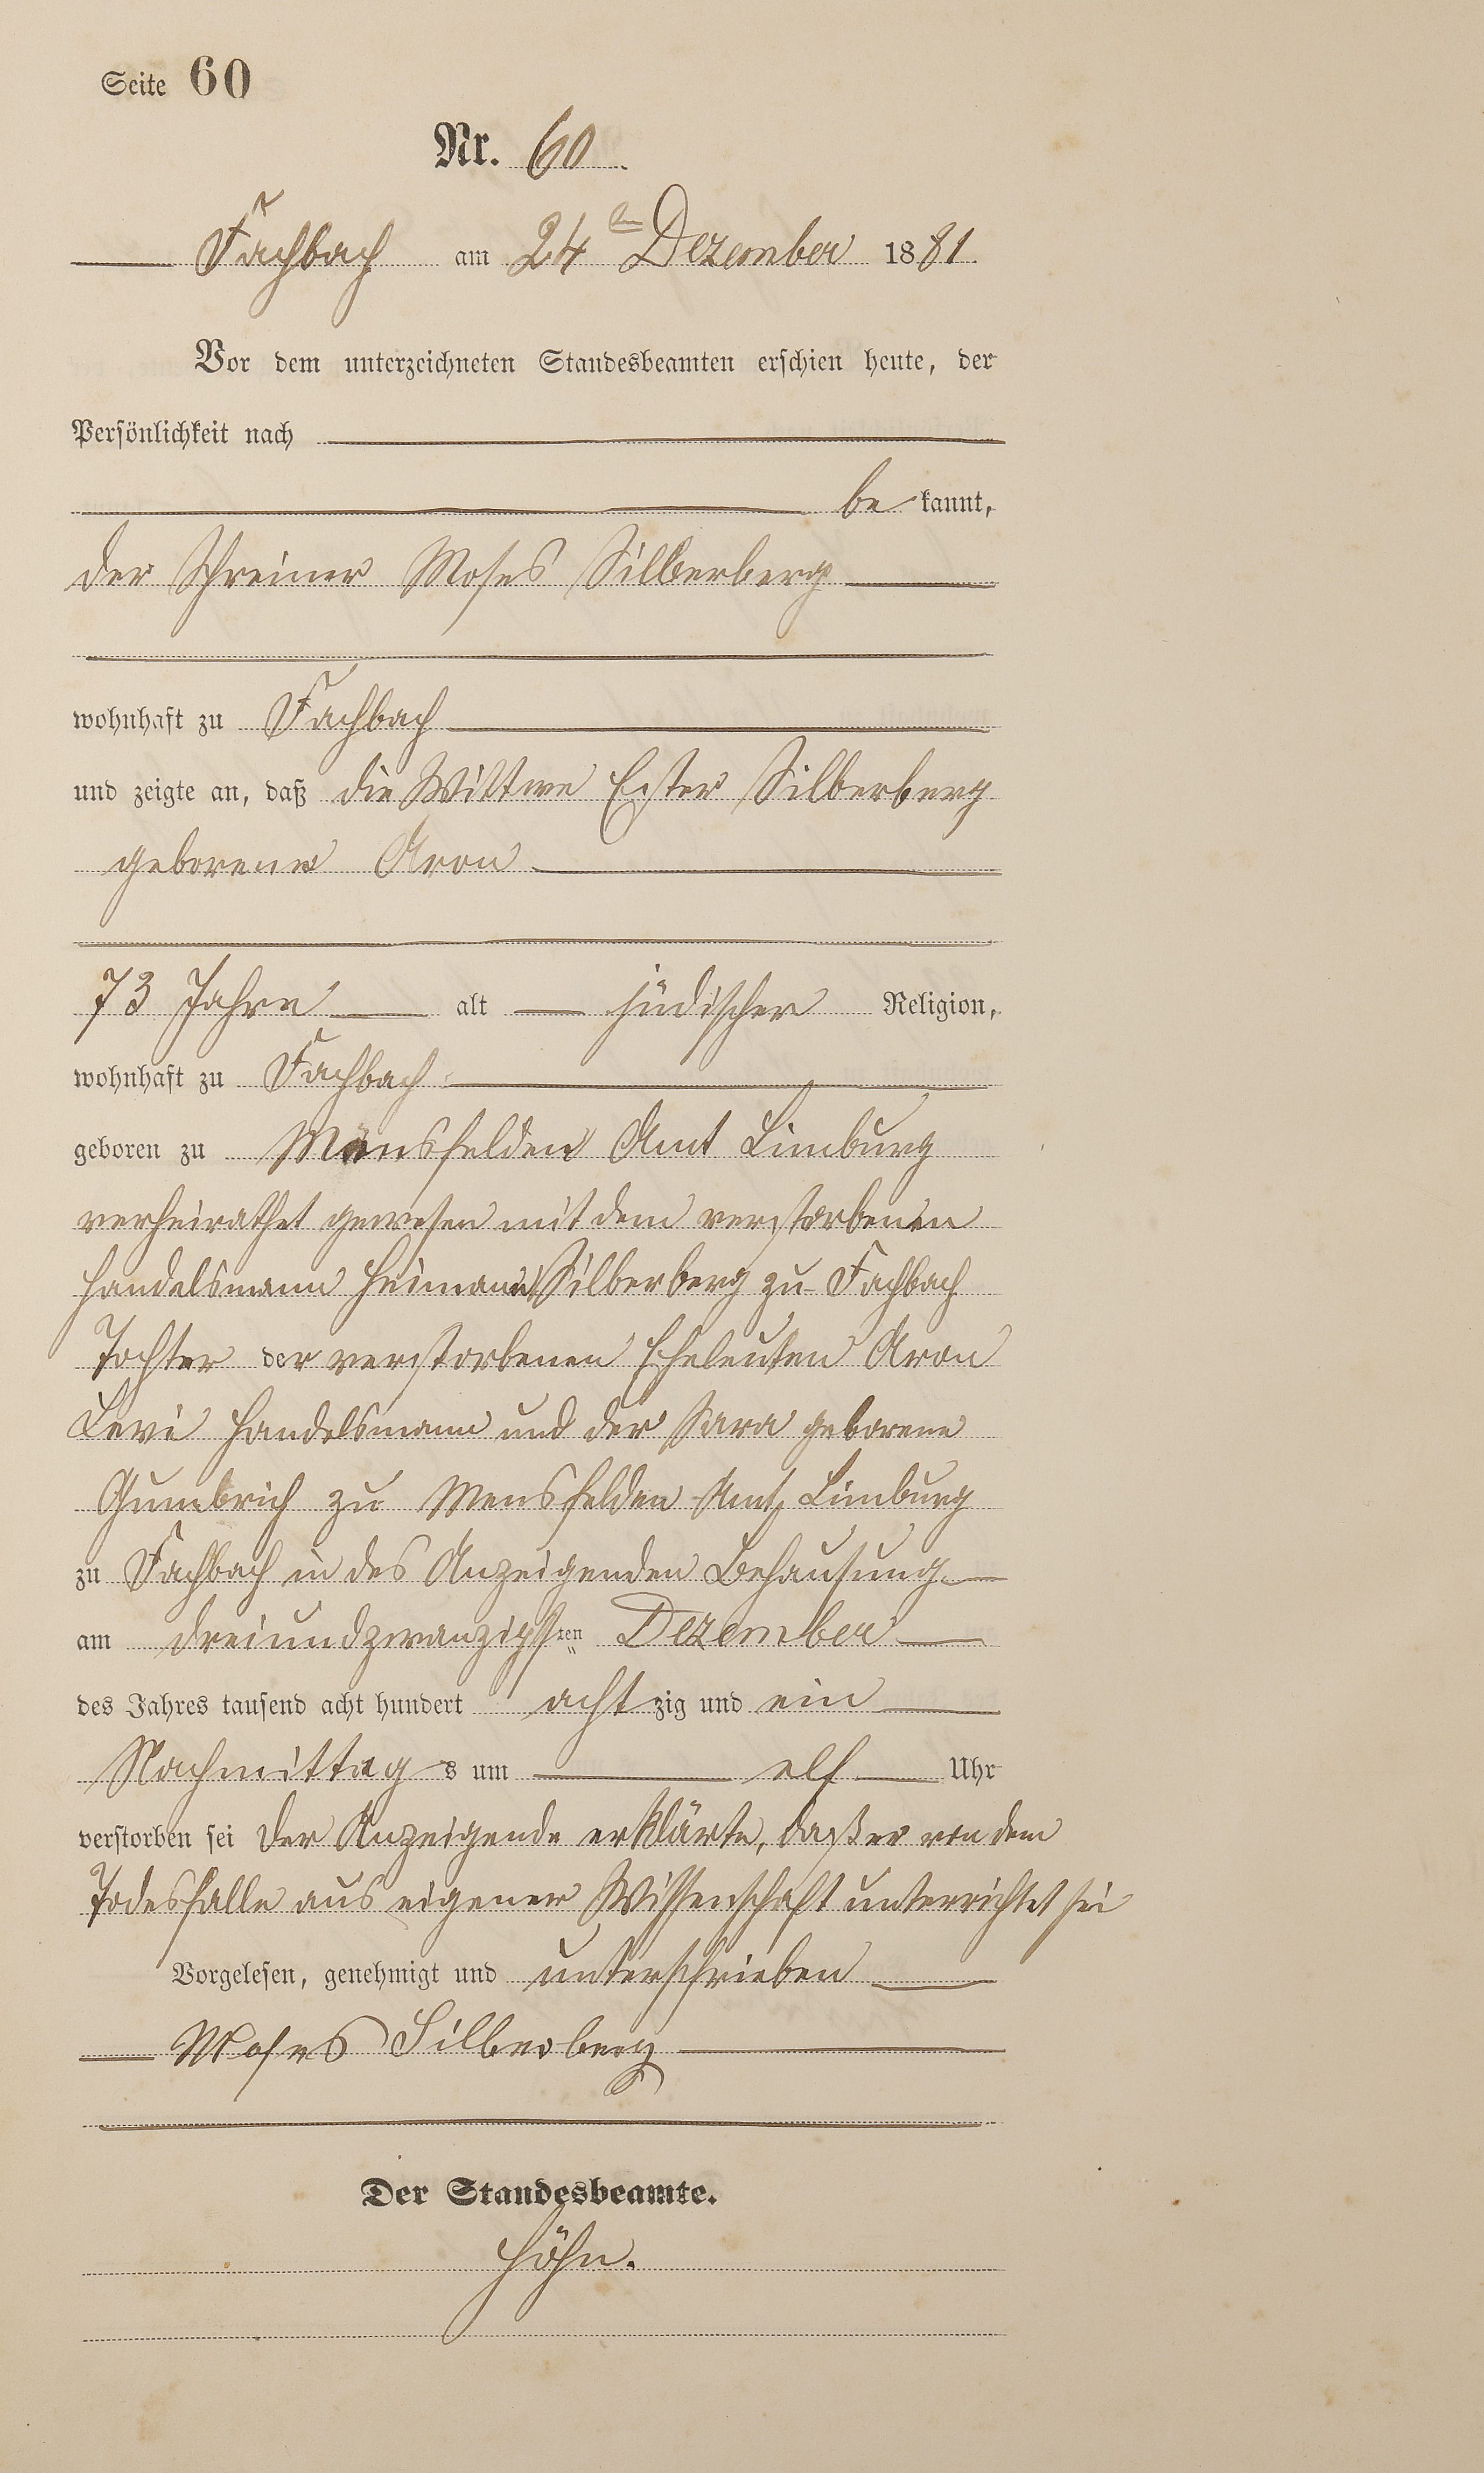 Seite 60
Nr. 60
Fachbach am 24ten Dezember 1881.
Vor dem unterzeichneten Standesbeamten erschien heute, der
Persönlichkeit nach
be kannt,
der Schreiner Moses Silberberg
wohnhaft zu Fachbach
und zeigte an, daß die Wittwe Ester Silberberg
geborene Aron
73 Jahre alt jüdischer Religion,
wohnhaft zu Fachbach
geboren zu Mensfelden Amt Limburg
verheirathet gewesen mit dem verstorbenen
Handelsmann Heimann Silberberg zu Fachbach
Tochter der verstorbenen Eheleuten Aron
Levi Handelsmann und der Sara geborene
Gumbrich zu Mensfelden Amt Limburg
zu Fachbach in des Anzeigenden Behausung
am dreiundzwanzigsten Dezember
des Jahres tausend acht hundert achtzig und ein
Nachmittags um elf Uhr
verstorben sei Der Anzeigende erklärte, daß er von dem
Todesfalle aus eigener Wissenschaft unterrichtet sei
Vorgelesen, genehmigt und unterschrieben
Moses Silberberg
Der Standesbeamte.
Höhn.